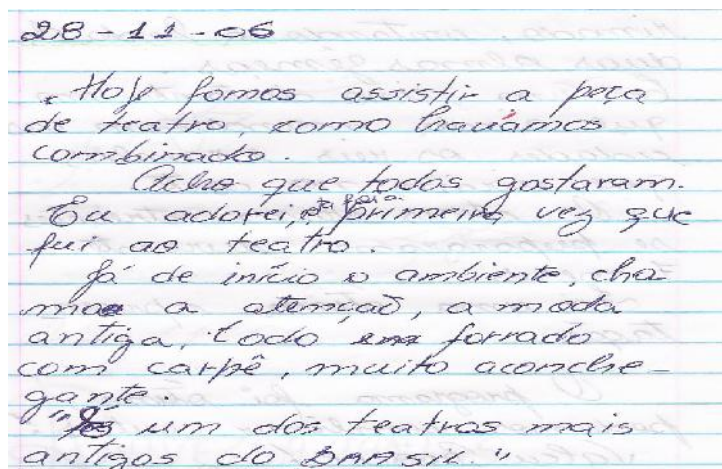 28-11-06
Hoje fomos assistir a peça
de teatro, como havíamos
combinado.
Acho que todos gostaram.
Eu adorei, primeira vez que
fui ao teatro.
Já de início o ambiente, cha
moa a atenção, a moda
antiga, todo forrado
com carpê, muito aconche-
gante.
" um dos teatros mais
antigos do BRASIL."